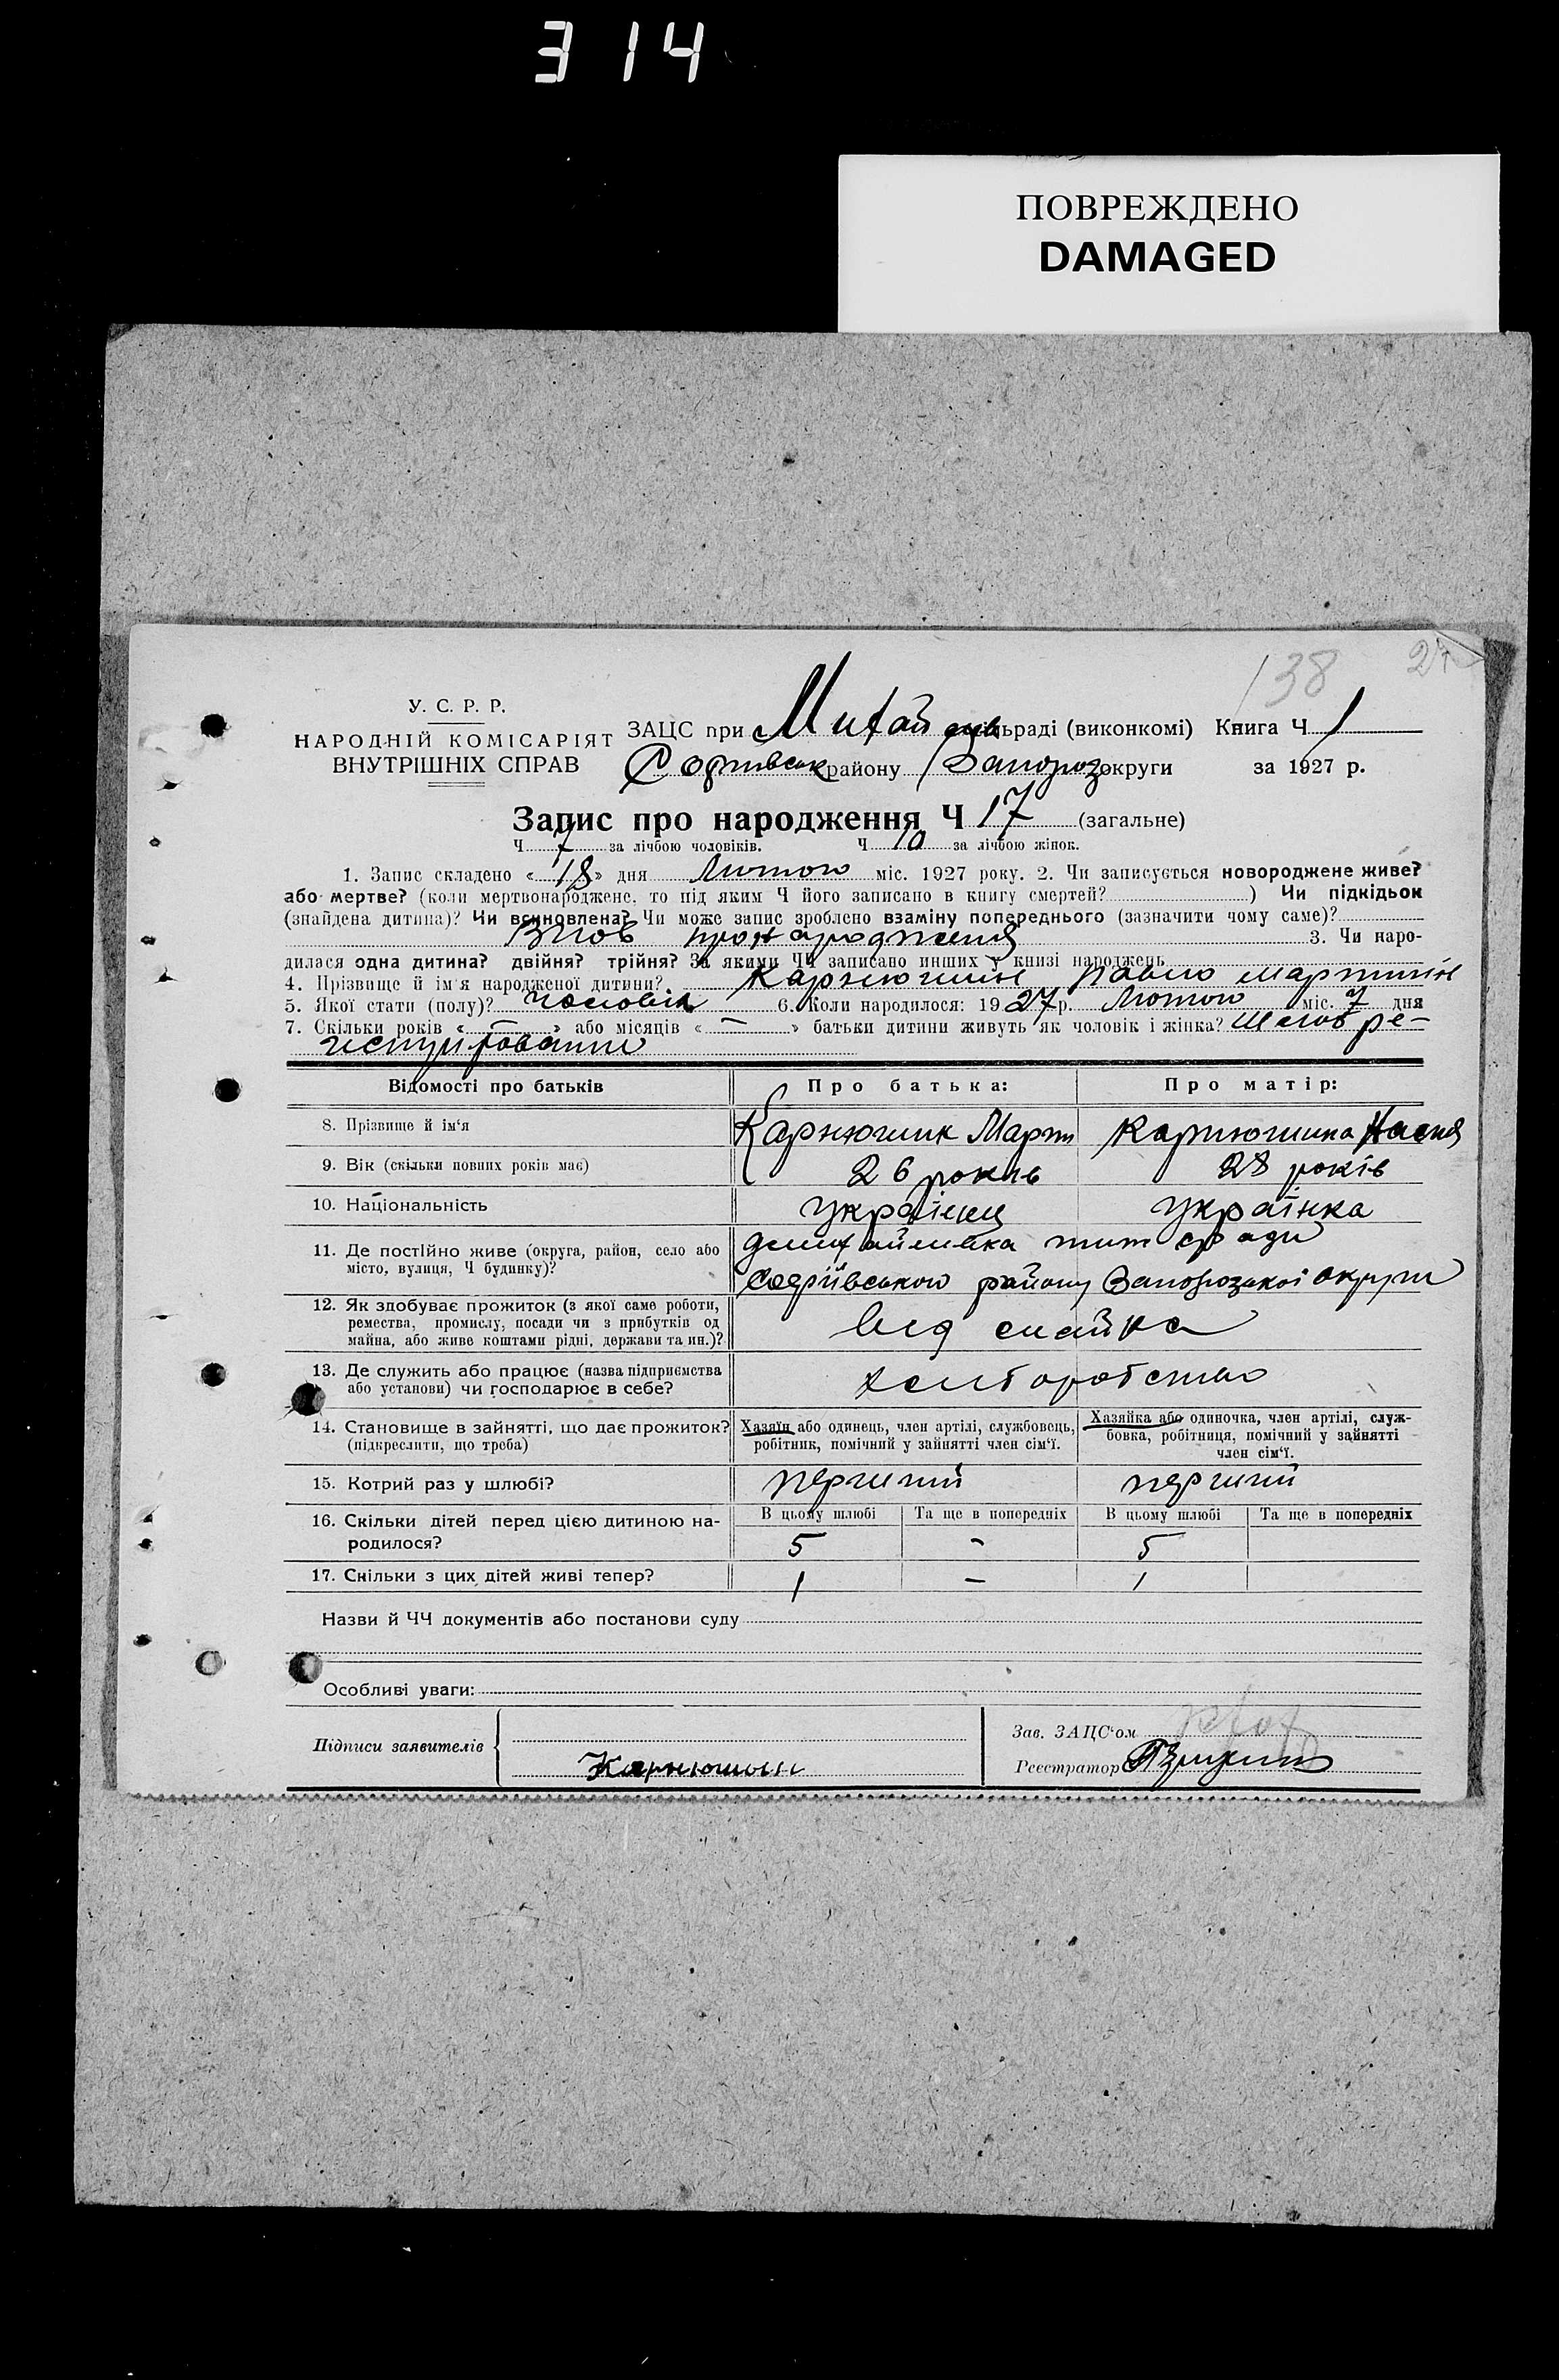 314
ПОВРЕЖДЕНО
DAMAGED
138
24
У. С. Р. Р.
НАРОДНІЙ КОМІСАРІЯТ
ВНУТРІШНІХ СПРАВ
ЗАЦС при Михай сільраді (виконкомі) Книга Ч 1
району Запороз округи за 1927 р.
Запис про народження Ч 17 (загальне)
Ч 7 за лічбою чоловіків. Ч 10 за лічбою жінок.
1. Запис складено « 18 » дня Лютого міс. 1927 року. 2. Чи записується новороджене живе?
або мертве? (коли мертвонароджене, то під яким Ч його записано в книгу смертей? ) Чи підкідьок
(знайдена дитина)? Чи всиновлена? Чи може запис зроблено взаміну попереднього (зазначити чому саме)?
3. Чи наро-
дилася одна дитина? двійня? трійня? За якими ЧЧ записано инших у книзі народжень
4. Прізвище й ім'я народженої дитини? Карнюшин Павло Мартинів
5. Якої стати (полу)? чоловік 6. Коли народилося: 1927 р. Лютого міс. 7 дня
7. Скільки років « — » або місяців « — » батьки дитини живуть як чоловік і жінка? Шлюб ре-
Відомості про батьків Про батька: Про матір:
8. Прізвище й ім'я Карнюшин Март Карнюшина
9. Вік (скільки повних років має) 26 років 28 років
10. Національність українець українка
11. Де постійно живе (округа, район, село або
місто, вулиця, Ч будинку)?
району Запорозької округи
12. Як здобуває прожиток (з якої саме роботи,
ремества, промислу, посади чи з прибутків од
майна, або живе коштами рідні, держави та ин.)?
13. Де служить або працює (назва підприємства
або установи) чи господарює в себе? хліборобство
14. Становище в зайнятті, що дає прожиток?
(підкреслити, що треба)
Хазяїн або одинець, член артілі, службовець,
робітник, помічний у зайнятті член сім'ї.
Хазяйка або одиночка, член артілі, служ-
бовка, робітниця, помічний у зайнятті
член сім'ї.
15. Котрий раз у шлюбі? перший перший
16. Скільки дітей перед цією дитиною на-
родилося?
В цьому шлюбі Та ще в попередніх В цьому шлюбі Та ще в попередніх
5 - 5
17. Скільки з цих дітей живі тепер? 1 — 1
Назви й ЧЧ документів або постанови суду
Особливі уваги:
Підписи заявителів Карнюшын
Зав. ЗАЦС'ом
Реєстратор